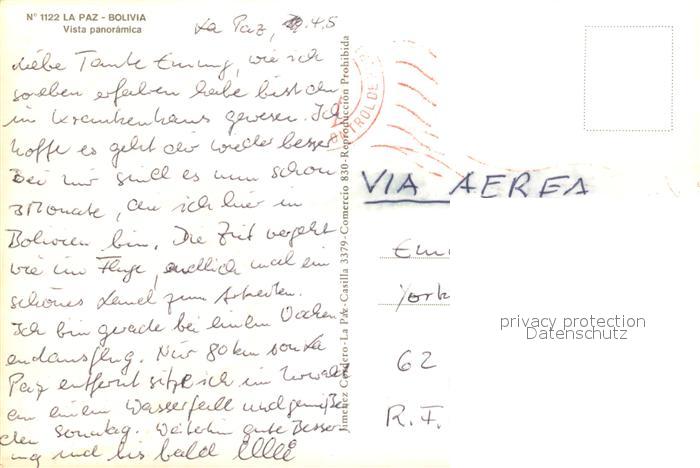 Nº 1122 LA PAZ - BOLIVIA
Vista panorámica
La Paz, 4.5
Liebe Tante Emmy, wie ich
soeben erfahren habe bist du
im Krankenhaus gewesen. Ich
hoffe es geht dir wieder besser
Bei mir sind es nun schon
3 Monate, die ich hier in
Bolivien bin. Die Zeit vergeht
wie im Fluge, endlich mal ein
schönes Land zum Arbeiten.
Ich bin gerade bei einem Wochen
endausflug. Nur 80 km von La
Paz entfernt sitze ich im Urwald
an einem Wasserfall und genieße
den Sonntag. Weiterhin gute Besser-
ung und bis bald
Jimenez Cordero - La Paz - Casilla 3379 - Comercio 830 - Reproducción Prohibida
VIA AEREA
Em
York
62
R.F.
privacy protection
Datenschutz